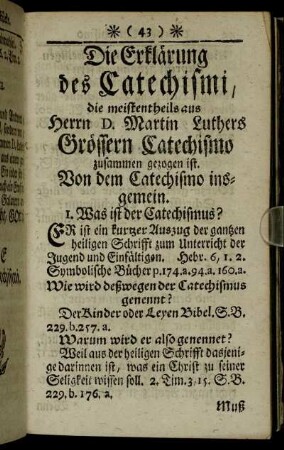 ( 43 )
Die Erklärung
des Catechismi,
die meistentheils aus
Herrn D. Martin Luthers
Grössern Catechismo
zusammen gezogen ist.
Von dem Catechismo ins-
gemein.
1. Was ist der Catechismus?
ER ist ein kurtzer Auszug der gantzen
heiligen Schrifft zum Unterricht der
Jugend und Einfältigen. Hebr. 6, 1. 2.
Symbolische Bücher p. 174. a. 94. a. 160. a.
Wie wird deßwegen der Catechismus
genennt?
Der Kinder oder Leyen Bibel. S. B.
229. b. 257. a.
Warum wird er also genennet?
Weil aus der heiligen Schrifft dasjeni-
ge darinnen ist, was ein Christ zu seiner
Seligkeit wissen soll. 2. Tim. 3, 15. S. B.
229. b. 176. a.
Muß